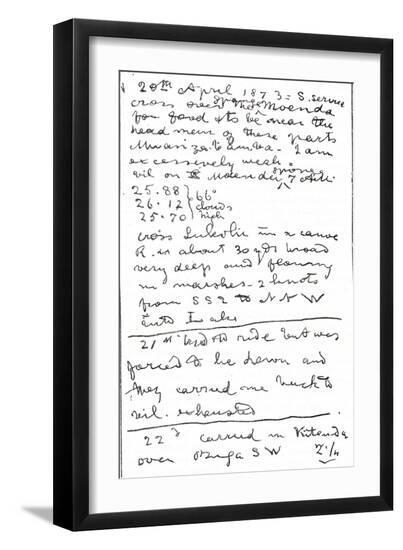 20th April 1873 = S. service
cross over the sponge Moenda
for food & to be near the
head men of these parts
Muanzambamba. I am
excessively weak
vil on Moenda sponge 7 AM
25.88 } 66°
26.12 } clouds
25.70 } high
cross Lokolu in a canoe
R. is about 30 yds broad
very deep and flowing
in marshes 2 knots
from SSE to NNW
into Lake
21st tried to ride but was
forced to lie down and
they carried me back to
vil. exhausted
22d carried in Kitanda
over Buga SW 2 1/4